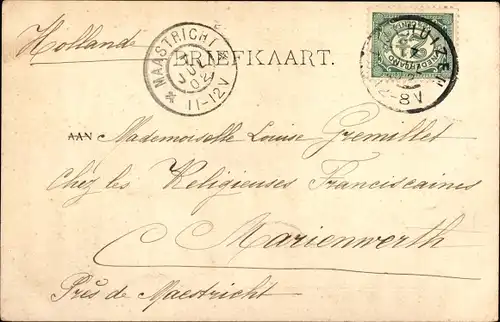 Holland
BRIEFKAART.
MAASTRICHT
JUL
02
11-12V
NEDERLAND
-8V
AAN Mademoiselle Louise Gremillet
Chez les Religieuses Franciscaines
Marienwerth
Près de Maestricht